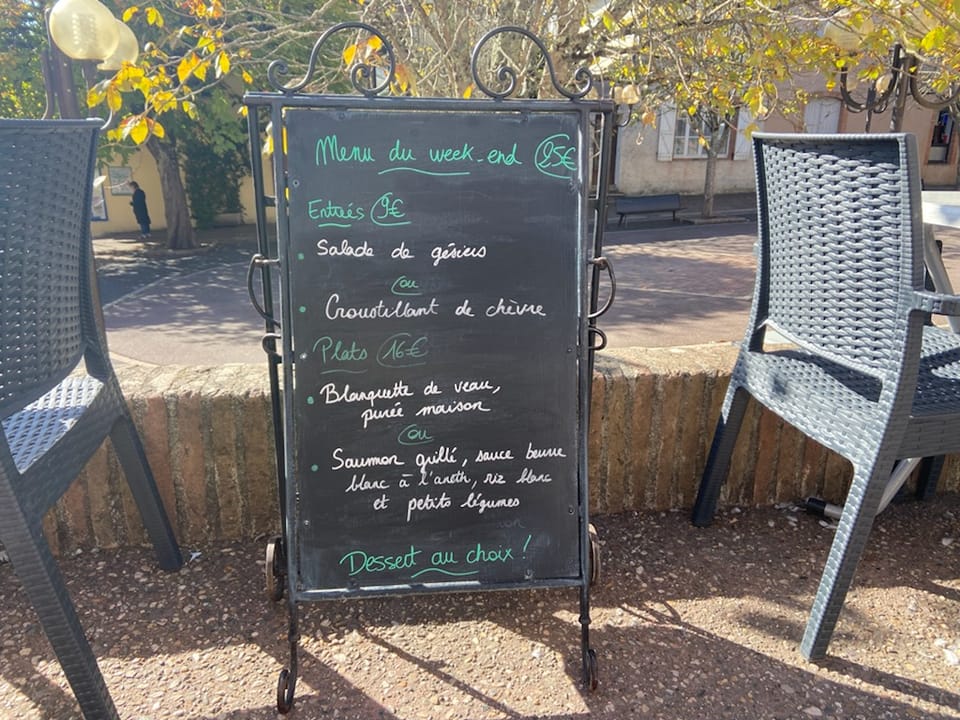 Menu du week-end 25€
Entrées 9€
Salade de gésiers
ou
Croustillant de chèvre
Plats 16€
Blanquette de veau,
purée maison
ou
Saumon grillé, sauce beurre
blanc à l'aneth, riz blanc
et petits légumes
Dessert au choix !